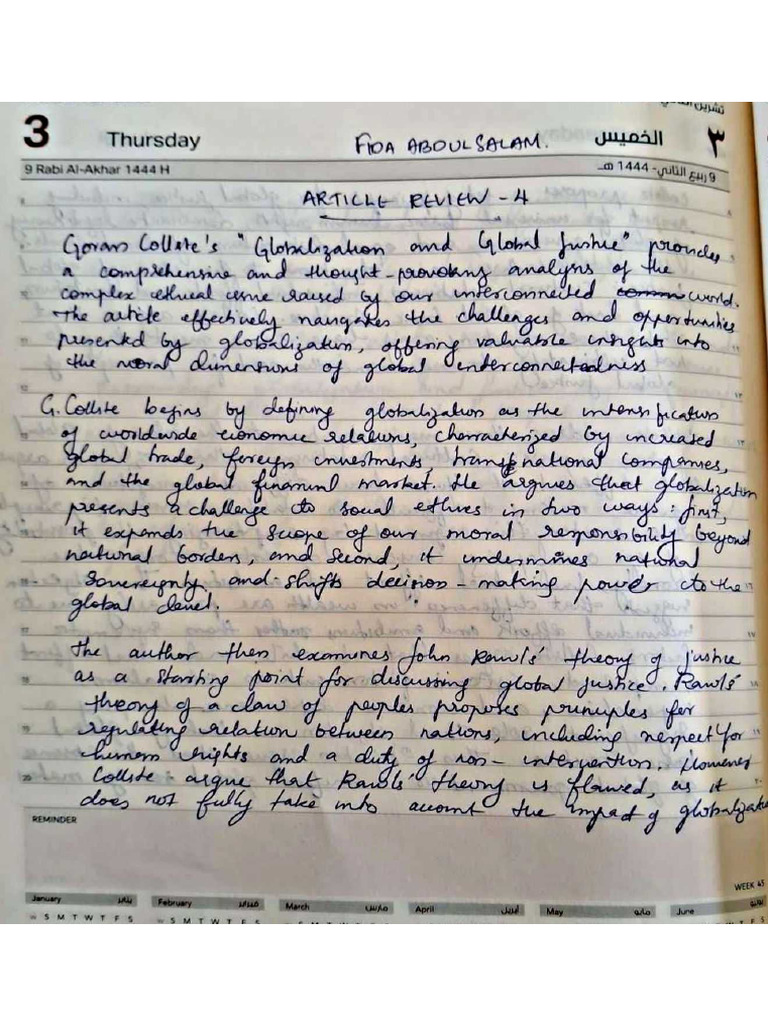 تشرين الثاني
3 Thursday FIDA ABDULSALAM. الخميس ٣
9 Rabi Al-Akhar 1444 H 9 ربيع الثاني - 1444 هـ
ARTICLE REVIEW - 4
Gorans Collste's "Globalization and Global Justice" provides
a comprehensive and thought-provoking analysis of the
complex ethical issue raised by our interconnected world.
The article effectively navigates the challenges and opportunities
presented by globalization, offering valuable insights into
the moral dimensions of global interconnectedness
G. Collste begins by defining globalization as the intensification
of worldwide economic relations, characterized by increased
global trade, foreign investments, transnational companies,
and the global financial market. He argues that globalization
presents a challenge to social ethics in two ways: first,
it expands the scope of our moral responsibility beyond
national borders, and second, it undermines national
sovereignty and shifts decision-making power to the
global level.
The author then examines John Rawls' theory of justice
as a starting point for discussing global justice. Rawls'
theory of a law of peoples proposes principles for
regulating relation between nations, including respect for
human rights and a duty of non-intervention. However
Collste argue that Rawls' theory is flawed, as it
does not fully take into account the impact of globalizatio
REMINDER
WEEK 45
January يناير February فبراير March مارس April أبريل May مايو June يونيو
W S M T W T F S W S M T W T F S